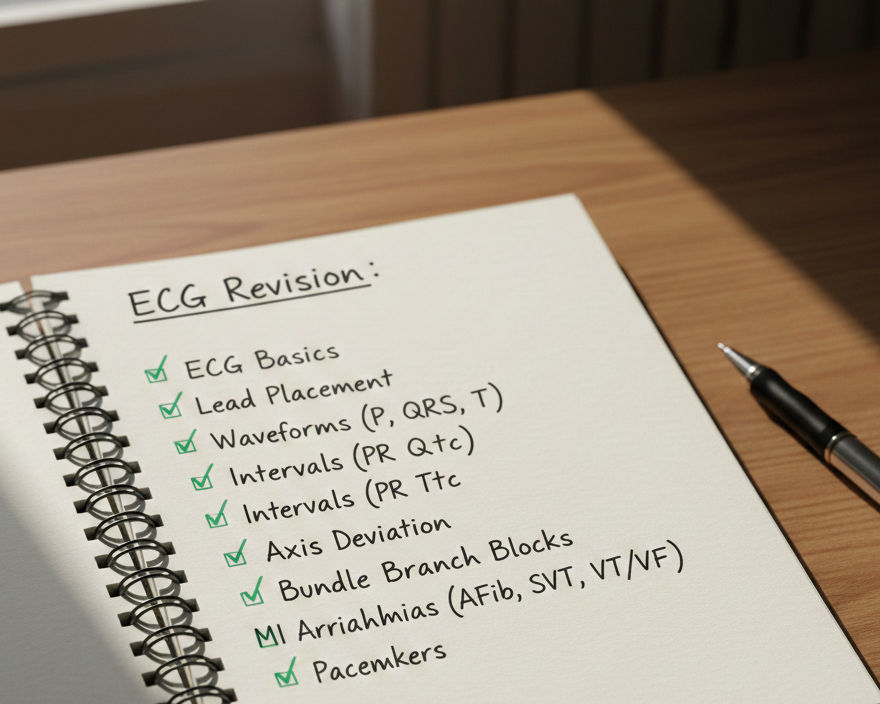 ECG Revision:
ECG Basics
Lead Placement
Waveforms (P, QRS, T)
Intervals (PR Qtc)
Intervals (PR Ttc
Axis Deviation
Bundle Branch Blocks
MI Arriahlmias (AFib, SVT, VT/VF)
Pacemkers